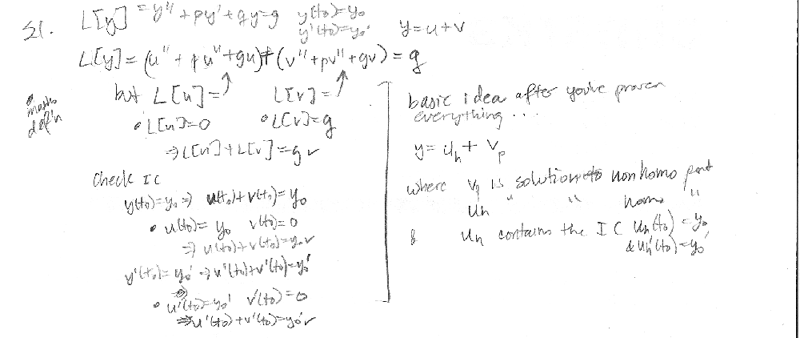 21. L[y] = y'' + py' + qy = g y(t₀)=y₀
y'(t₀)=y₀' y=u+v
L[y] = (u'' + pu'' + qu) + (v'' + pv'' + qv) = g
but L[u]= L[v]=
• L[u]=0 • L[v]=g
⇒ L[u]+L[v]=g ✓
Check IC
y(t₀)=y₀ ⇒ u(t₀)+v(t₀)=y₀
• u(t₀)=y₀ v(t₀)=0
⇒ u(t₀)+v(t₀)=y₀ ✓
y'(t₀)=y₀' ⇒ u'(t₀)+v'(t₀)=y₀'
• u'(t₀)=y₀' v'(t₀)=0
⇒ u'(t₀)+v'(t₀)=y₀' ✓
basic idea after you've proven
everything...
y = u_h + v_p
where v_p is solution to nonhomo part
u_h " " homo "
& u_h contains the IC u_h(t₀)=y₀
& u_h'(t₀)=y₀'